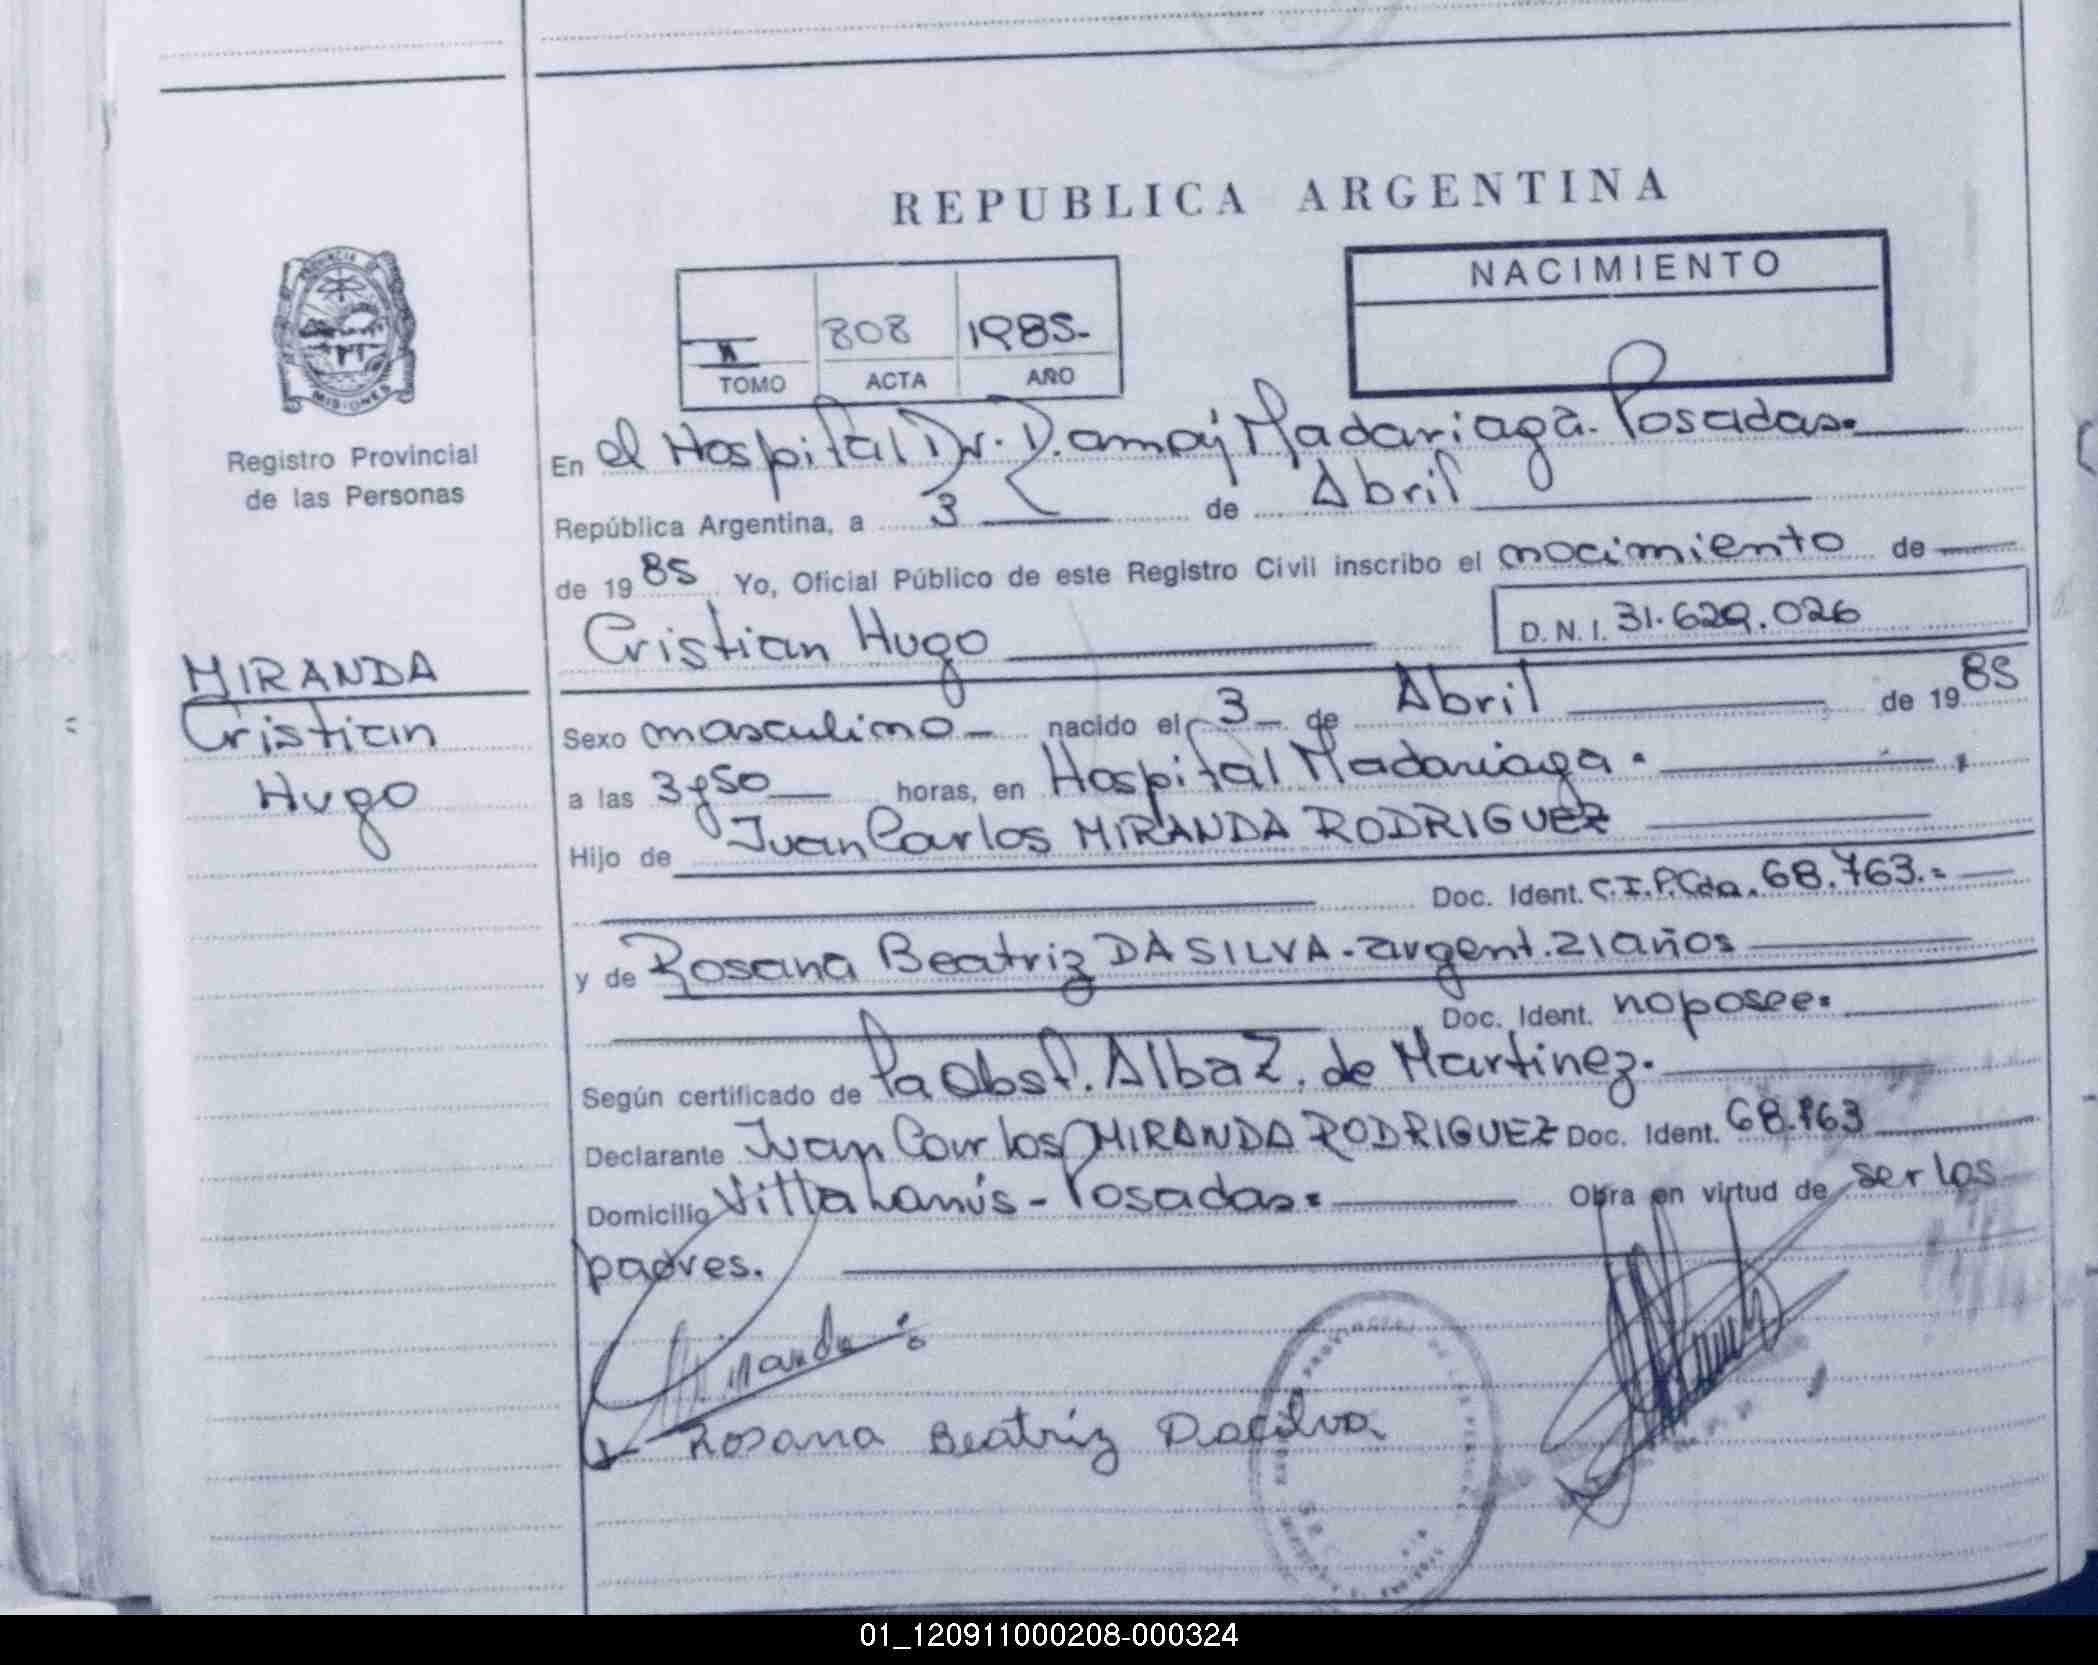 REPUBLICA ARGENTINA
NACIMIENTO
808 1985-
TOMO ACTA AÑO
PROVINCIA DE MISIONES
Registro Provincial
de las Personas
En el Hospital Dr. Ramón Madariaga. Posadas.
República Argentina, a 3 de Abril
de 1985 Yo, Oficial Público de este Registro Civil inscribo el nacimiento de
Cristian Hugo D.N.I. 31.629.026
MIRANDA
Cristian
Hugo
Sexo masculino - nacido el 3 de Abril de 1985
a las 3 y 50 horas, en Hospital Madariaga.
Hijo de Juan Carlos MIRANDA RODRIGUEZ
Doc. Ident. C.I.P.Cda. 68.763.=
y de Rosana Beatriz DA SILVA - argent. 21 años
Doc. Ident. no posee.
Según certificado de la Obst. Alba Z. de Martinez.
Declarante Juan Carlos MIRANDA RODRIGUEZ Doc. Ident. 68.763
Domicilio Villa Lanús - Posadas. Obra en virtud de ser los
padres.
Miranda
Rosana Beatriz Dasilva
01_120911000208-000324